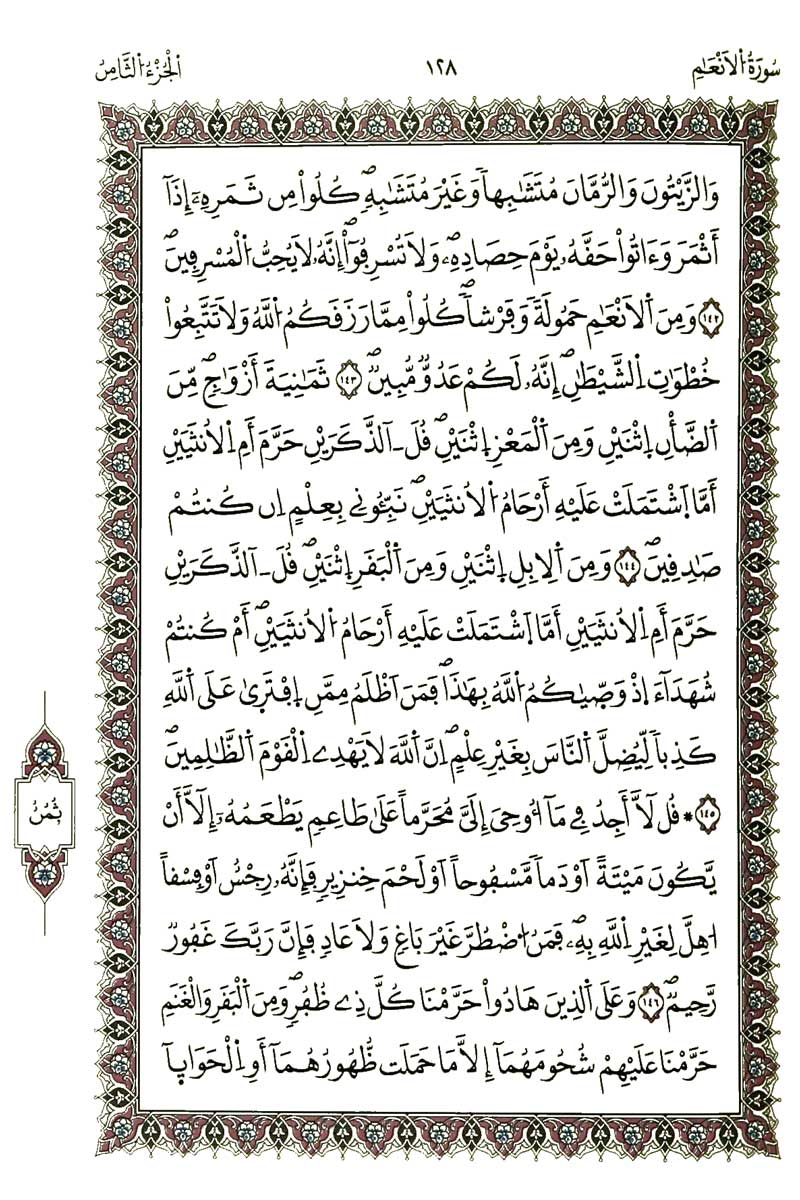 سُورَةُ الْأَنْعَامِ
١٢٨
الْجُزْءُ الثَّامِنُ
وَالزَّيْتُونَ وَالرُّمَّانَ مُتَشَٰبِهاٗ وَغَيْرَ مُتَشَٰبِهٖۖ كُلُواْ مِن ثَمَرِهِۦٓ إِذَآ
أَثْمَرَ وَءَاتُواْ حَقَّهُۥ يَوْمَ حِصَادِهِۦۖ وَلَا تُسْرِفُوٓاْۖ إِنَّهُۥ لَا يُحِبُّ الْمُسْرِفِينَۖ
١٤٢ وَمِنَ اَلَانْعَٰمِ حَمُولَةٗ وَفَرْشاٗۖ كُلُواْ مِمَّا رَزَقَكُمُ اُللَّهُ وَلَا تَتَّبِعُواْ
خُطْوَٰتِ اِلشَّيْطَٰنِۖ إِنَّهُۥ لَكُمْ عَدُوّٞ مُّبِينٞۖ ١٤٣ ثَمَٰنِيَةَ أَزْوَٰجٖۖ مِّنَ
اَلضَّأْنِ اِثْنَيْنِ وَمِنَ اَلْمَعْزِ اِثْنَيْنِۖ قُلَ ـآلذَّكَرَيْنِ حَرَّمَ أَمِ اِلُانثَيَيْنِ
أَمَّا اَشْتَمَلَتْ عَلَيْهِ أَرْحَامُ اُلُانثَيَيْنِۖ نَبِّـُٔونِي بِعِلْمٍ اِن كُنتُمْ
صَٰدِقِينَۖ ١٤٤ وَمِنَ اَلِابِلِ اِثْنَيْنِ وَمِنَ اَلْبَقَرِ اِثْنَيْنِۖ قُلَ ـآلذَّكَرَيْنِ
حَرَّمَ أَمِ اِلُانثَيَيْنِ أَمَّا اَشْتَمَلَتْ عَلَيْهِ أَرْحَامُ اُلُانثَيَيْنِۖ أَمْ كُنتُمْ
شُهَدَآءَ اِذْ وَصّ۪يٰكُمُ اُللَّهُ بِهَٰذَاۖ فَمَنَ اَظْلَمُ مِمَّنِ اِفْتَر۪يٰ عَلَى اَللَّهِ
كَذِباٗ لِّيُضِلَّ اَلنَّاسَ بِغَيْرِ عِلْمٍۖ اِنَّ اَللَّهَ لَا يَهْدِے اِلْقَوْمَ اَلظَّٰلِمِينَۖ
١٤٥ * قُل لَّآ أَجِدُ فِي مَآ أُوحِيَ إِلَيَّ مُحَرَّماً عَلَىٰ طَاعِمٖ يَطْعَمُهُۥٓ إِلَّآ أَنْ
يَّكُونَ مَيْتَةً اَوْ دَماٗ مَّسْفُوحاً اَوْ لَحْمَ خِنزِيرٖ فَإِنَّهُۥ رِجْسٌ اَوْ فِسْقاً
اُهِلَّ لِغَيْرِ اِللَّهِ بِهِۦۖ فَمَنُ اُضْطُرَّ غَيْرَ بَاغٖ وَلَا عَادٖ فَإِنَّ رَبَّكَ غَفُورٞ
رَّحِيمٞۖ ١٤٦ وَعَلَى اَلذِينَ هَادُواْ حَرَّمْنَا كُلَّ ذِے ظُفُرٖۖ وَمِنَ اَلْبَقَرِ وَالْغَنَمِ
حَرَّمْنَا عَلَيْهِمْ شُحُومَهُمَآ إِلَّا مَا حَمَلَت ظُّهُورُهُمَآ أَوِ اِلْحَوَايَآ
ثُمُنُ